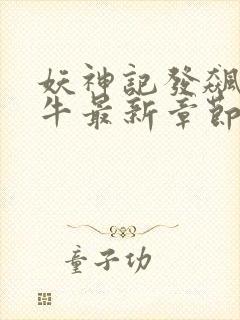 妖神記發飆
牛最新章節
童子功